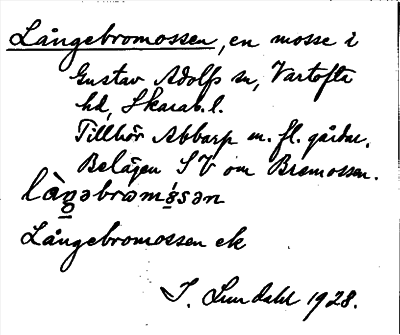 Långebromossen, en mosse i
Gustav Adolfs sn, Vartofta
hd, Skarab. l.
Tillhör Abbarp m. fl. gårdar.
Belägen SV om Bramossen.
Långebromossen ek
I. Lundahl 1928.